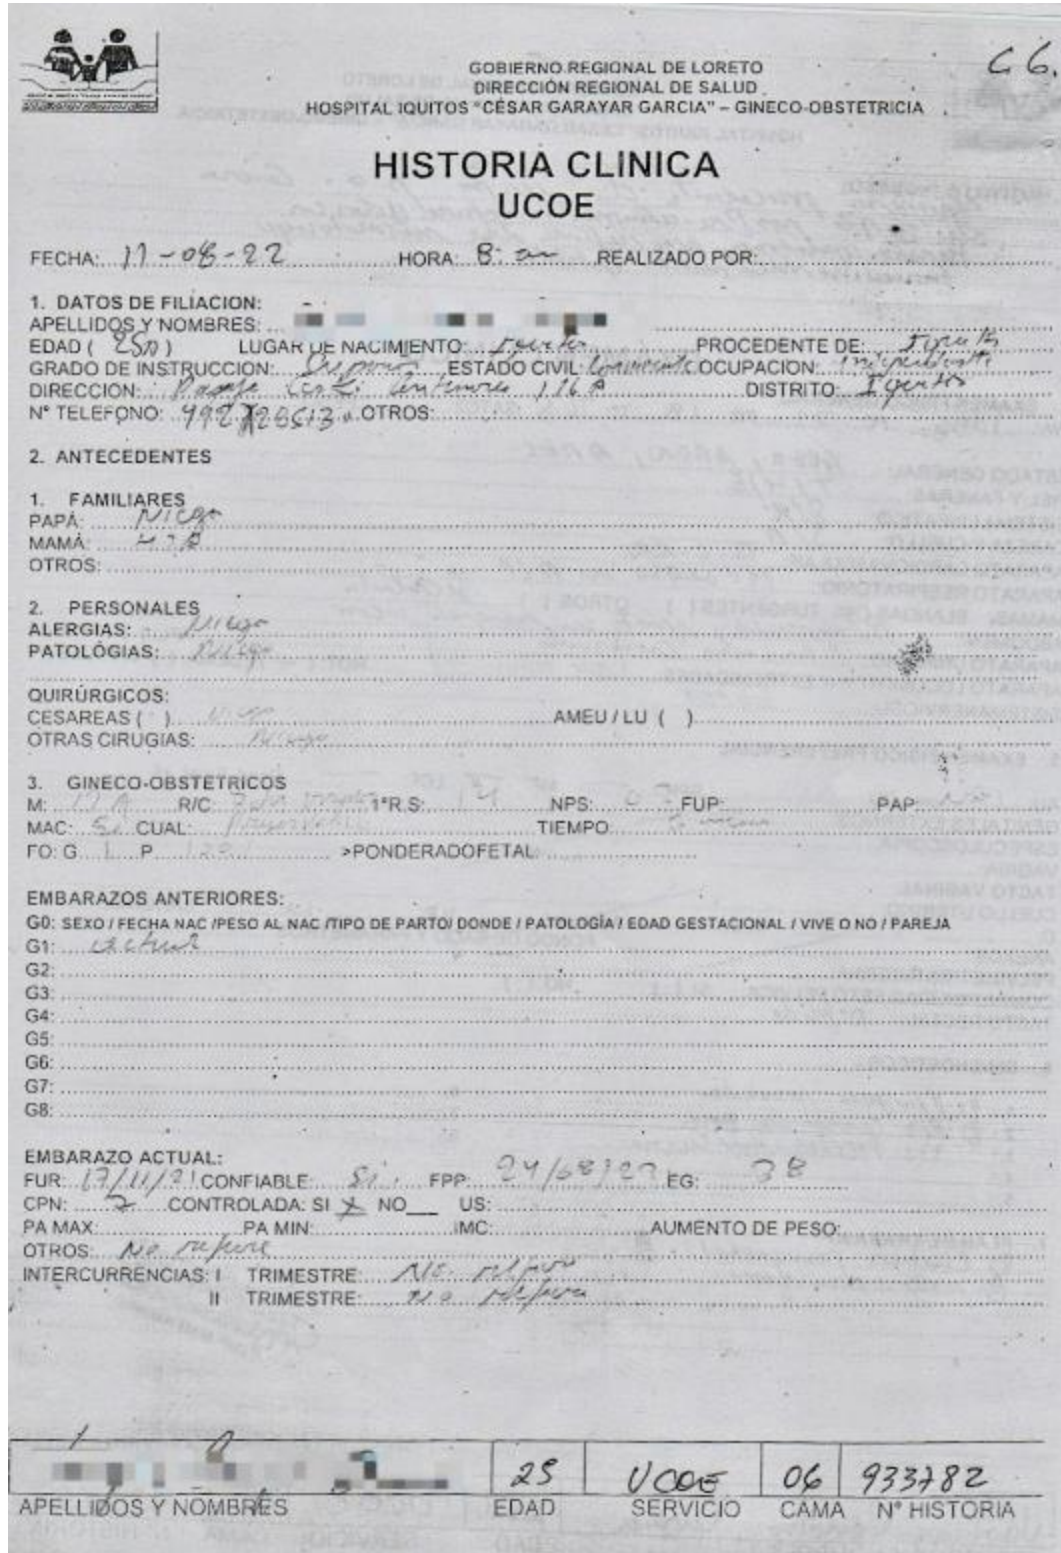 C6.
GOBIERNO REGIONAL DE LORETO
DIRECCIÓN REGIONAL DE SALUD
HOSPITAL IQUITOS "CÉSAR GARAYAR GARCIA" – GINECO-OBSTETRICIA
HISTORIA CLINICA
UCOE
FECHA: 17-08-22 HORA: 8: am REALIZADO POR:
1. DATOS DE FILIACION:
APELLIDOS Y NOMBRES:
EDAD ( 25a ) LUGAR DE NACIMIENTO: Iquitos PROCEDENTE DE: Iquitos
GRADO DE INSTRUCCION: Superior ESTADO CIVIL: Conviviente OCUPACION: independiente
DIRECCION: Pasaje 116 A DISTRITO: Iquitos
N° TELEFONO: OTROS:
2. ANTECEDENTES
1. FAMILIARES
PAPÁ: Niega
MAMÁ: HTA
OTROS:
2. PERSONALES
ALERGIAS: Niega
PATOLÓGIAS: Niega
QUIRÚRGICOS:
CESAREAS ( ) Niega AMEU / LU ( )
OTRAS CIRUGIAS: Niega
3. GINECO-OBSTETRICOS
M: R/C: 1°R.S: NPS: FUP: PAP:
MAC: Si CUAL: TIEMPO:
FO: G 1 P >PONDERADOFETAL
EMBARAZOS ANTERIORES:
G0: SEXO / FECHA NAC /PESO AL NAC /TIPO DE PARTO/ DONDE / PATOLOGÍA / EDAD GESTACIONAL / VIVE O NO / PAREJA
G1: actual
G2:
G3:
G4:
G5:
G6:
G7:
G8:
EMBARAZO ACTUAL:
FUR: 17/11/21 CONFIABLE: Si. FPP: 24/08/22 EG: 38
CPN: 7 CONTROLADA: SI X NO__ US:
PA MAX: PA MIN: IMC: AUMENTO DE PESO:
OTROS: No refiere
INTERCURRENCIAS: I TRIMESTRE: No refiere
II TRIMESTRE: No refiere
25 UCOE 06 933782
APELLIDOS Y NOMBRES EDAD SERVICIO CAMA N° HISTORIA